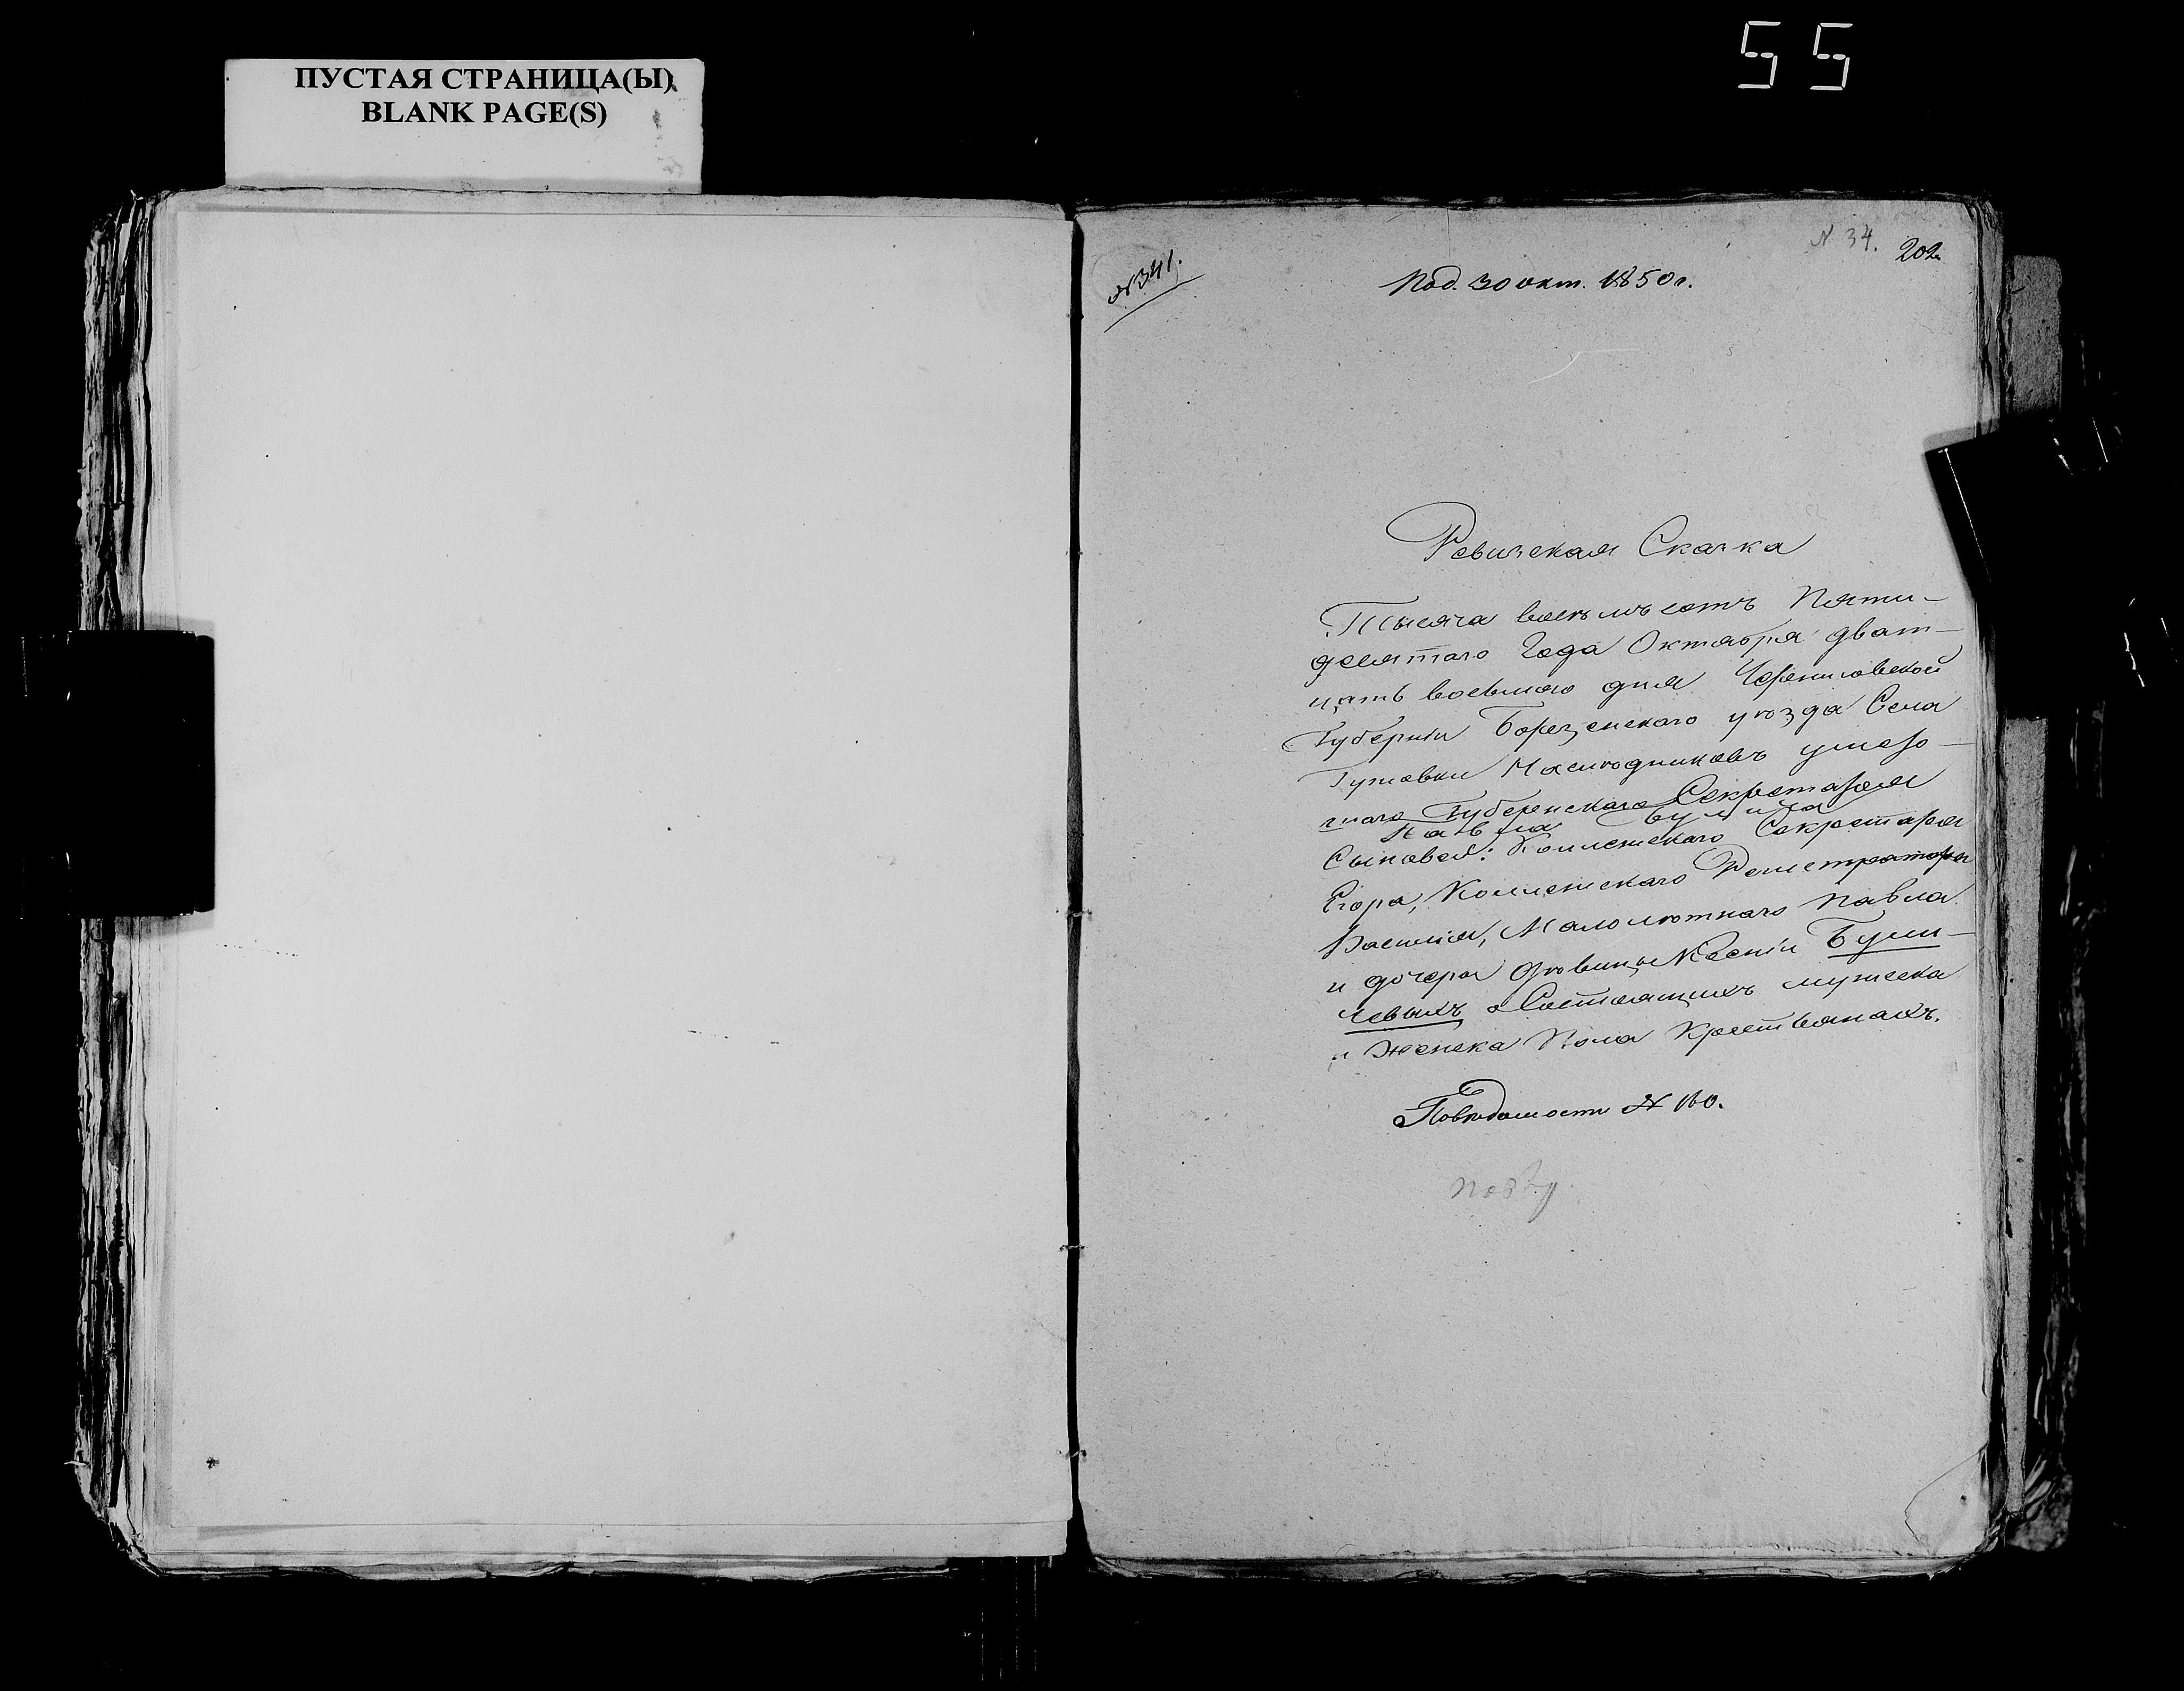 55
ПУСТАЯ СТРАНИЦА(Ы)
BLANK PAGE(S)
N 34.
202
№ 341.
Под. 30 окт. 1850 г.
Ревизская Сказка
Тысяча восемь сотъ Пяти-
десятаго Года Октября дват-
цать восьмаго дня Черниговской
Губерніи Борзенскаго уѣзда Села
Наслѣдниковъ умер-
шаго Губернскаго Секретаря
Павла
Сыновей: Коллежскаго Секретаря
Егора, Коллежскаго Регистратора
Василія, Малолѣтнаго Павла
и дочери дѣвицы Ксеніи
о Состоящихъ мужеска
и Женска Пола Крестьянахъ.
По вѣдомости №